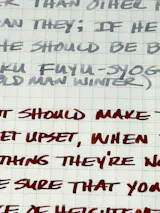 THAN OTHER
AN THEY; IF HE
HE SHOULD BE B
KU FUYU-SYOG
OLD MAN WINTER)
T SHOULD MAKE
ET UPSET, WHEN
THING THEY'RE NO
E SURE THAT YOU
CE OF HEIGHTEN